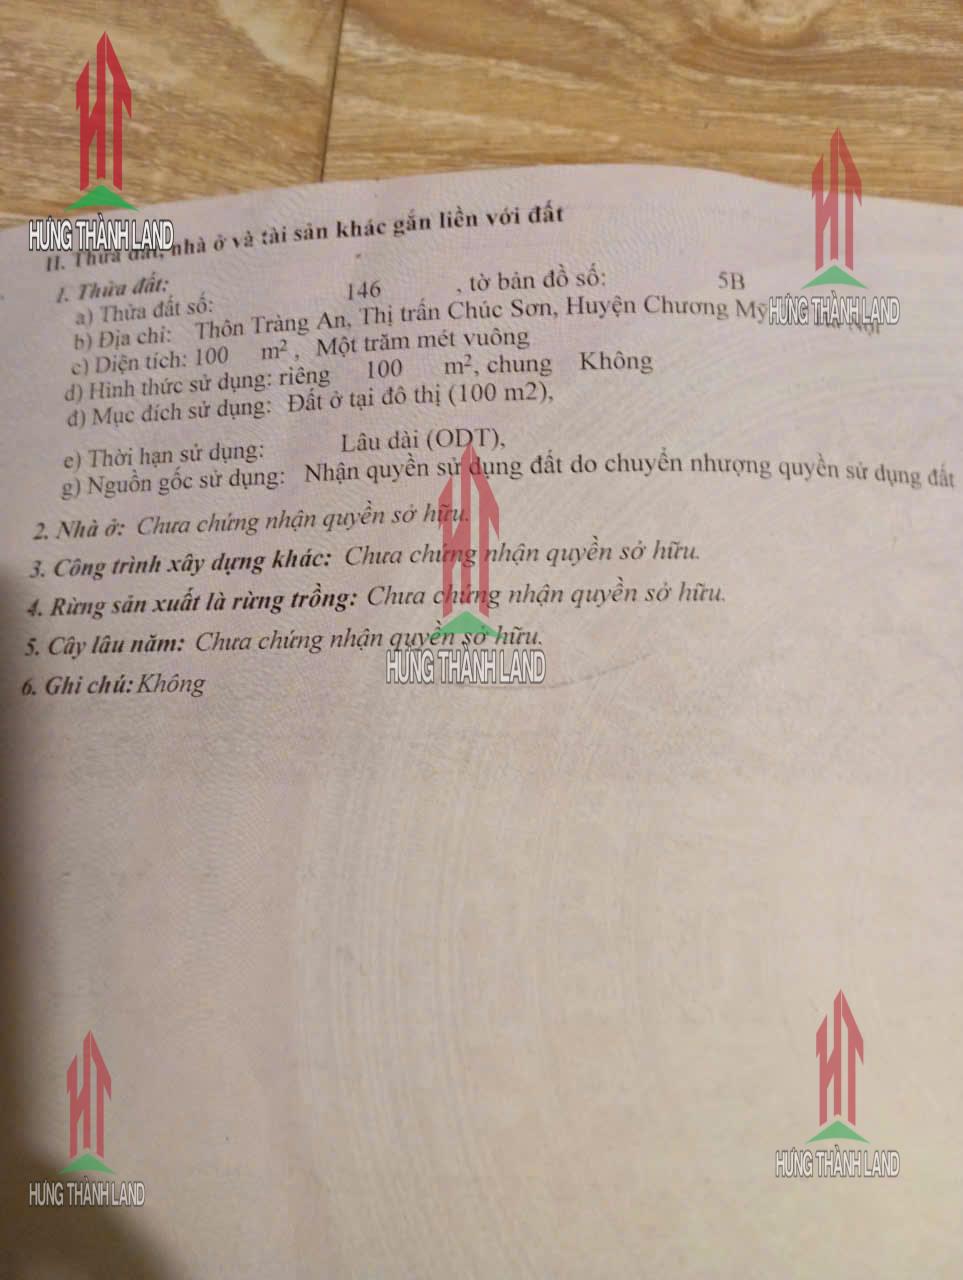 HƯNG THÀNH LAND
II. Thửa đất, nhà ở và tài sản khác gắn liền với đất
1. Thửa đất:
a) Thửa đất số: 146 , tờ bản đồ số: 5B
b) Địa chỉ: Thôn Tràng An, Thị trấn Chúc Sơn, Huyện Chương Mỹ Nội
HƯNG THÀNH LAND
c) Diện tích: 100 m², Một trăm mét vuông
d) Hình thức sử dụng: riêng 100 m², chung Không
đ) Mục đích sử dụng: Đất ở tại đô thị (100 m2),
e) Thời hạn sử dụng: Lâu dài (ODT),
g) Nguồn gốc sử dụng: Nhận quyền sử dụng đất do chuyển nhượng quyền sử dụng đất
2. Nhà ở: Chưa chứng nhận quyền sở hữu.
3. Công trình xây dựng khác: Chưa chứng nhận quyền sở hữu.
4. Rừng sản xuất là rừng trồng: Chưa chứng nhận quyền sở hữu.
5. Cây lâu năm: Chưa chứng nhận quyền sở hữu.
HƯNG THÀNH LAND
6. Ghi chú: Không
HƯNG THÀNH LAND
HƯNG THÀNH LAND